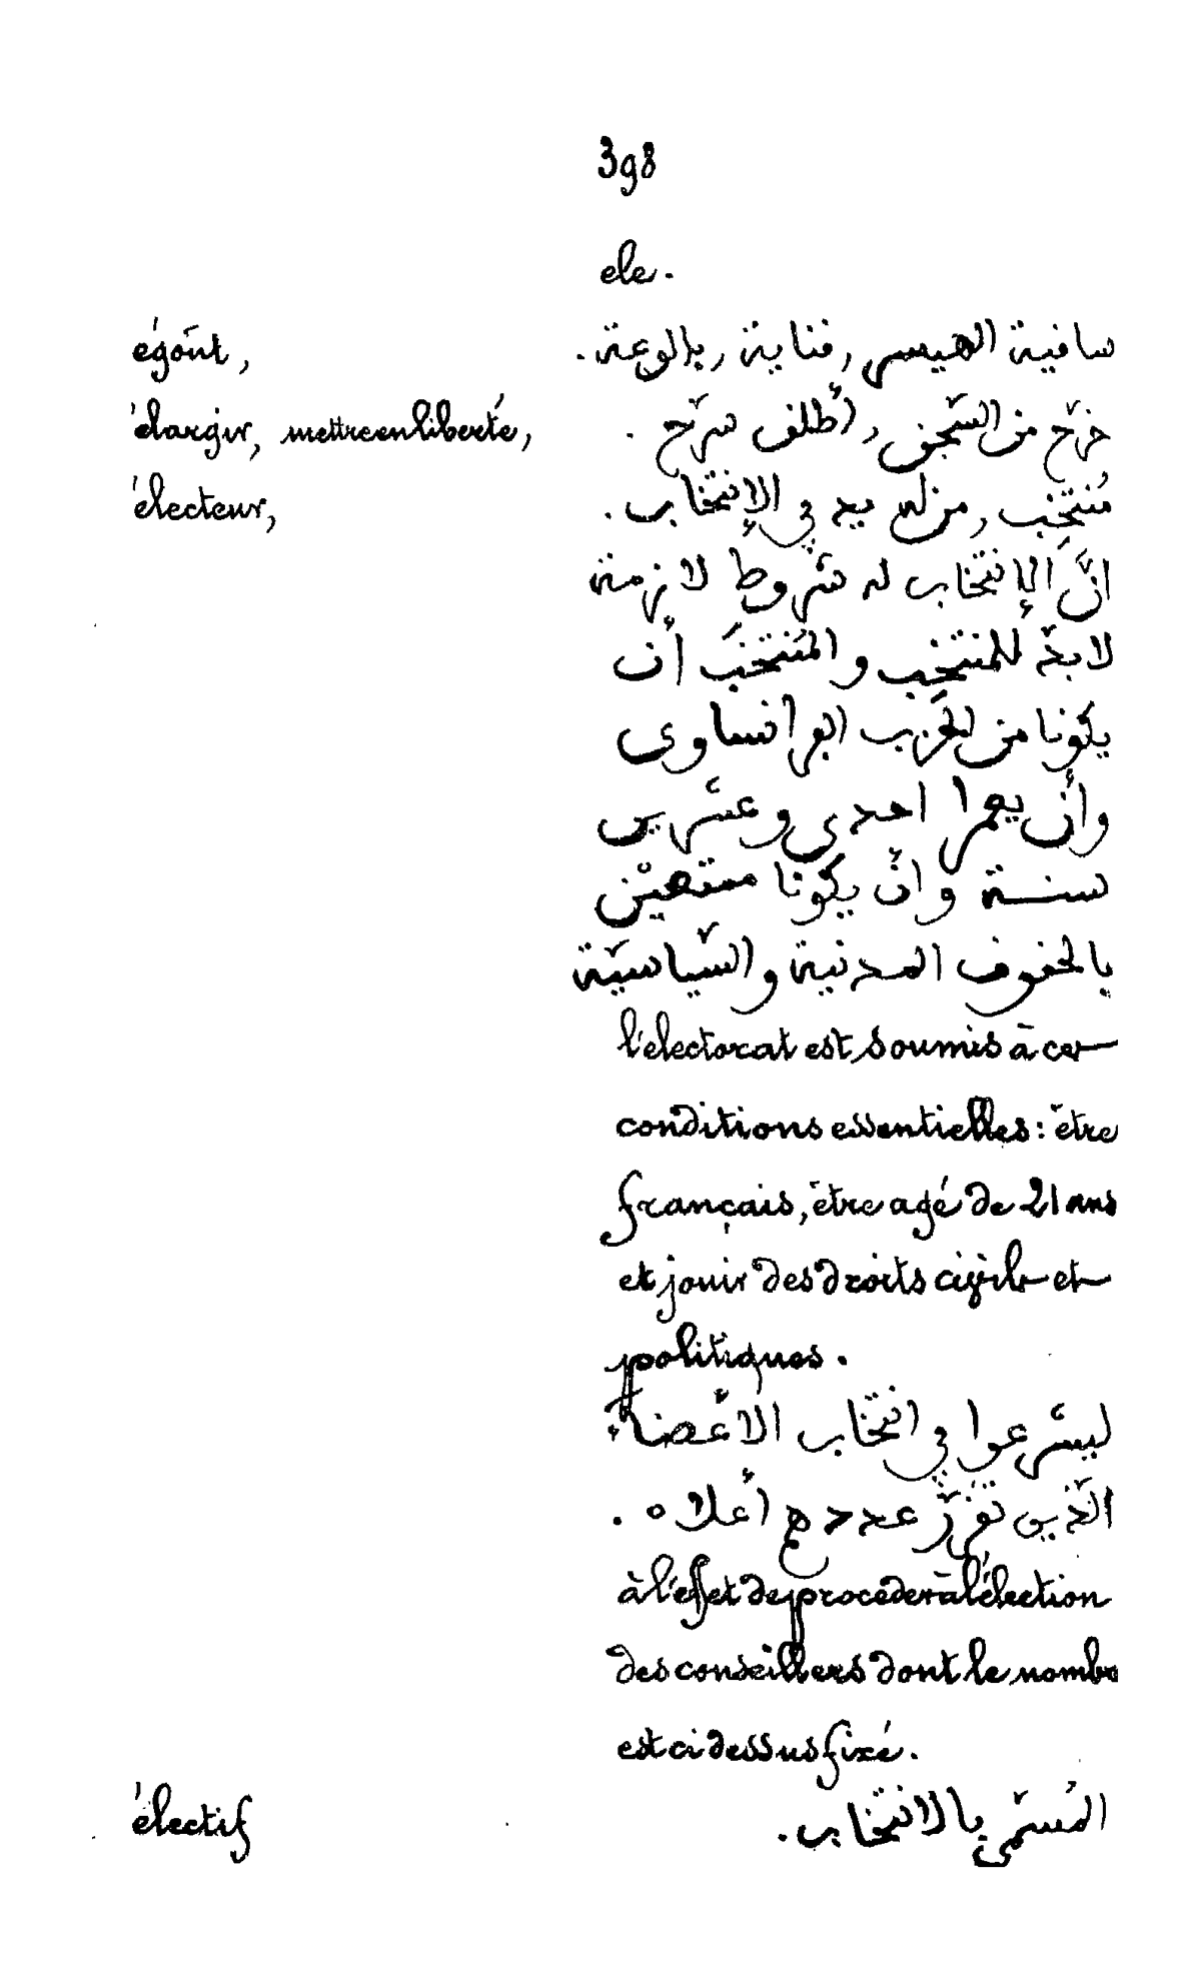 398
ele.
égoût, سافية الهيسر, فناية, بالوعة.
élargir, mettre en liberté, خرّج من السّجن, أطلف سرّح.
électeur, مُنتخِب, من له يد في الإنتخاب.
انَّ الإنتخاب له شروط لازمة
لابدّ للمنتخِب والمُنتخَب أن
يكونا من الحزب البرانساوي
وأن يعمرا احدى وعشرين
سنة وأن يكونا متمتعيْن
بالحفوف المدنية والسّياسيّة
l'électorat est soumis à ces
conditions essentielles: être
français, être agé de 21 ans
et jouir des droits civils et
politiques.
ليشرعوا في انتخاب الأعضاء
الّذين تفرّر عددهم أعلاه.
à l'effet de procéder à l'élection
des conseillers dont le nombre
est ci dessus fixé.
électif المُسمّى بالانتخاب.